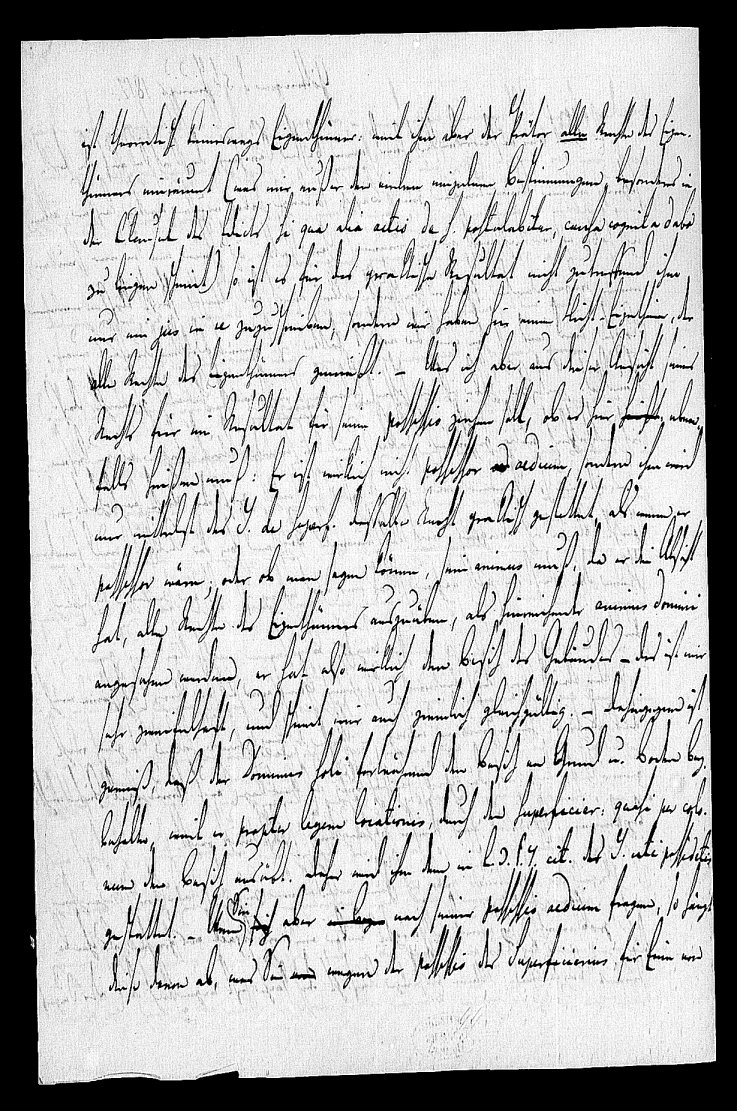 ist theoretisch keineswegs Eigenthümer: weil ihm aber der Prätor alle Rechte des Eigen-
thümers einräumt (was mir außer den vielen einzelnen Bestimmungen, besonders in
der Clausel des Edicts si qua alia actio de s. postulabitur, causa cognita dabo
zu liegen scheint) so ist es für das practische Resultat nicht zutreffend ihm
nur ein jus in re zuzuschreiben, sondern wir haben hier einen Nicht-Eigenthümer, der
alle Rechte des Eigenthümers genießt. – Was ich aber aus dieser Ansicht seines
Rechts für ein Resultat für seine possessio ziehen soll, ob es hier eben-
falls heißen muß: Er ist wirklich nicht possessor aedium, sondern ihm wird
nur mittelst des I. de superf. dasselbe Recht practisch gestattet, als wenn er
possessor wäre; oder ob man sagen könne, sein animus muß, da er die Absicht
hat, alle Rechte des Eigenthümers auszuüben, als hinreichender animus domini
angesehen werden, er hat also wirklich den Besitz des Gebäudes – das ist mir
sehr zweifelhaft, und scheint mir auch ziemlich gleichgültig. – Dahingegen ist
gewiß, daß der Dominus soli fortwährend den Besitz an Grund u. Boden bey-
behalte, weil er, propter legem locationis, durch den Superficiar: quasi per colo-
num den Besitz ausübt. Daher wird ihm denn in L. 3. §. 7. cit. das I. uti possidetis
gestattet. – Wenn Sie aber nach seiner possessio aedium fragen, so hängt
diese davon ab, was Sie wegen der possessio des Superficiarius für Eine von